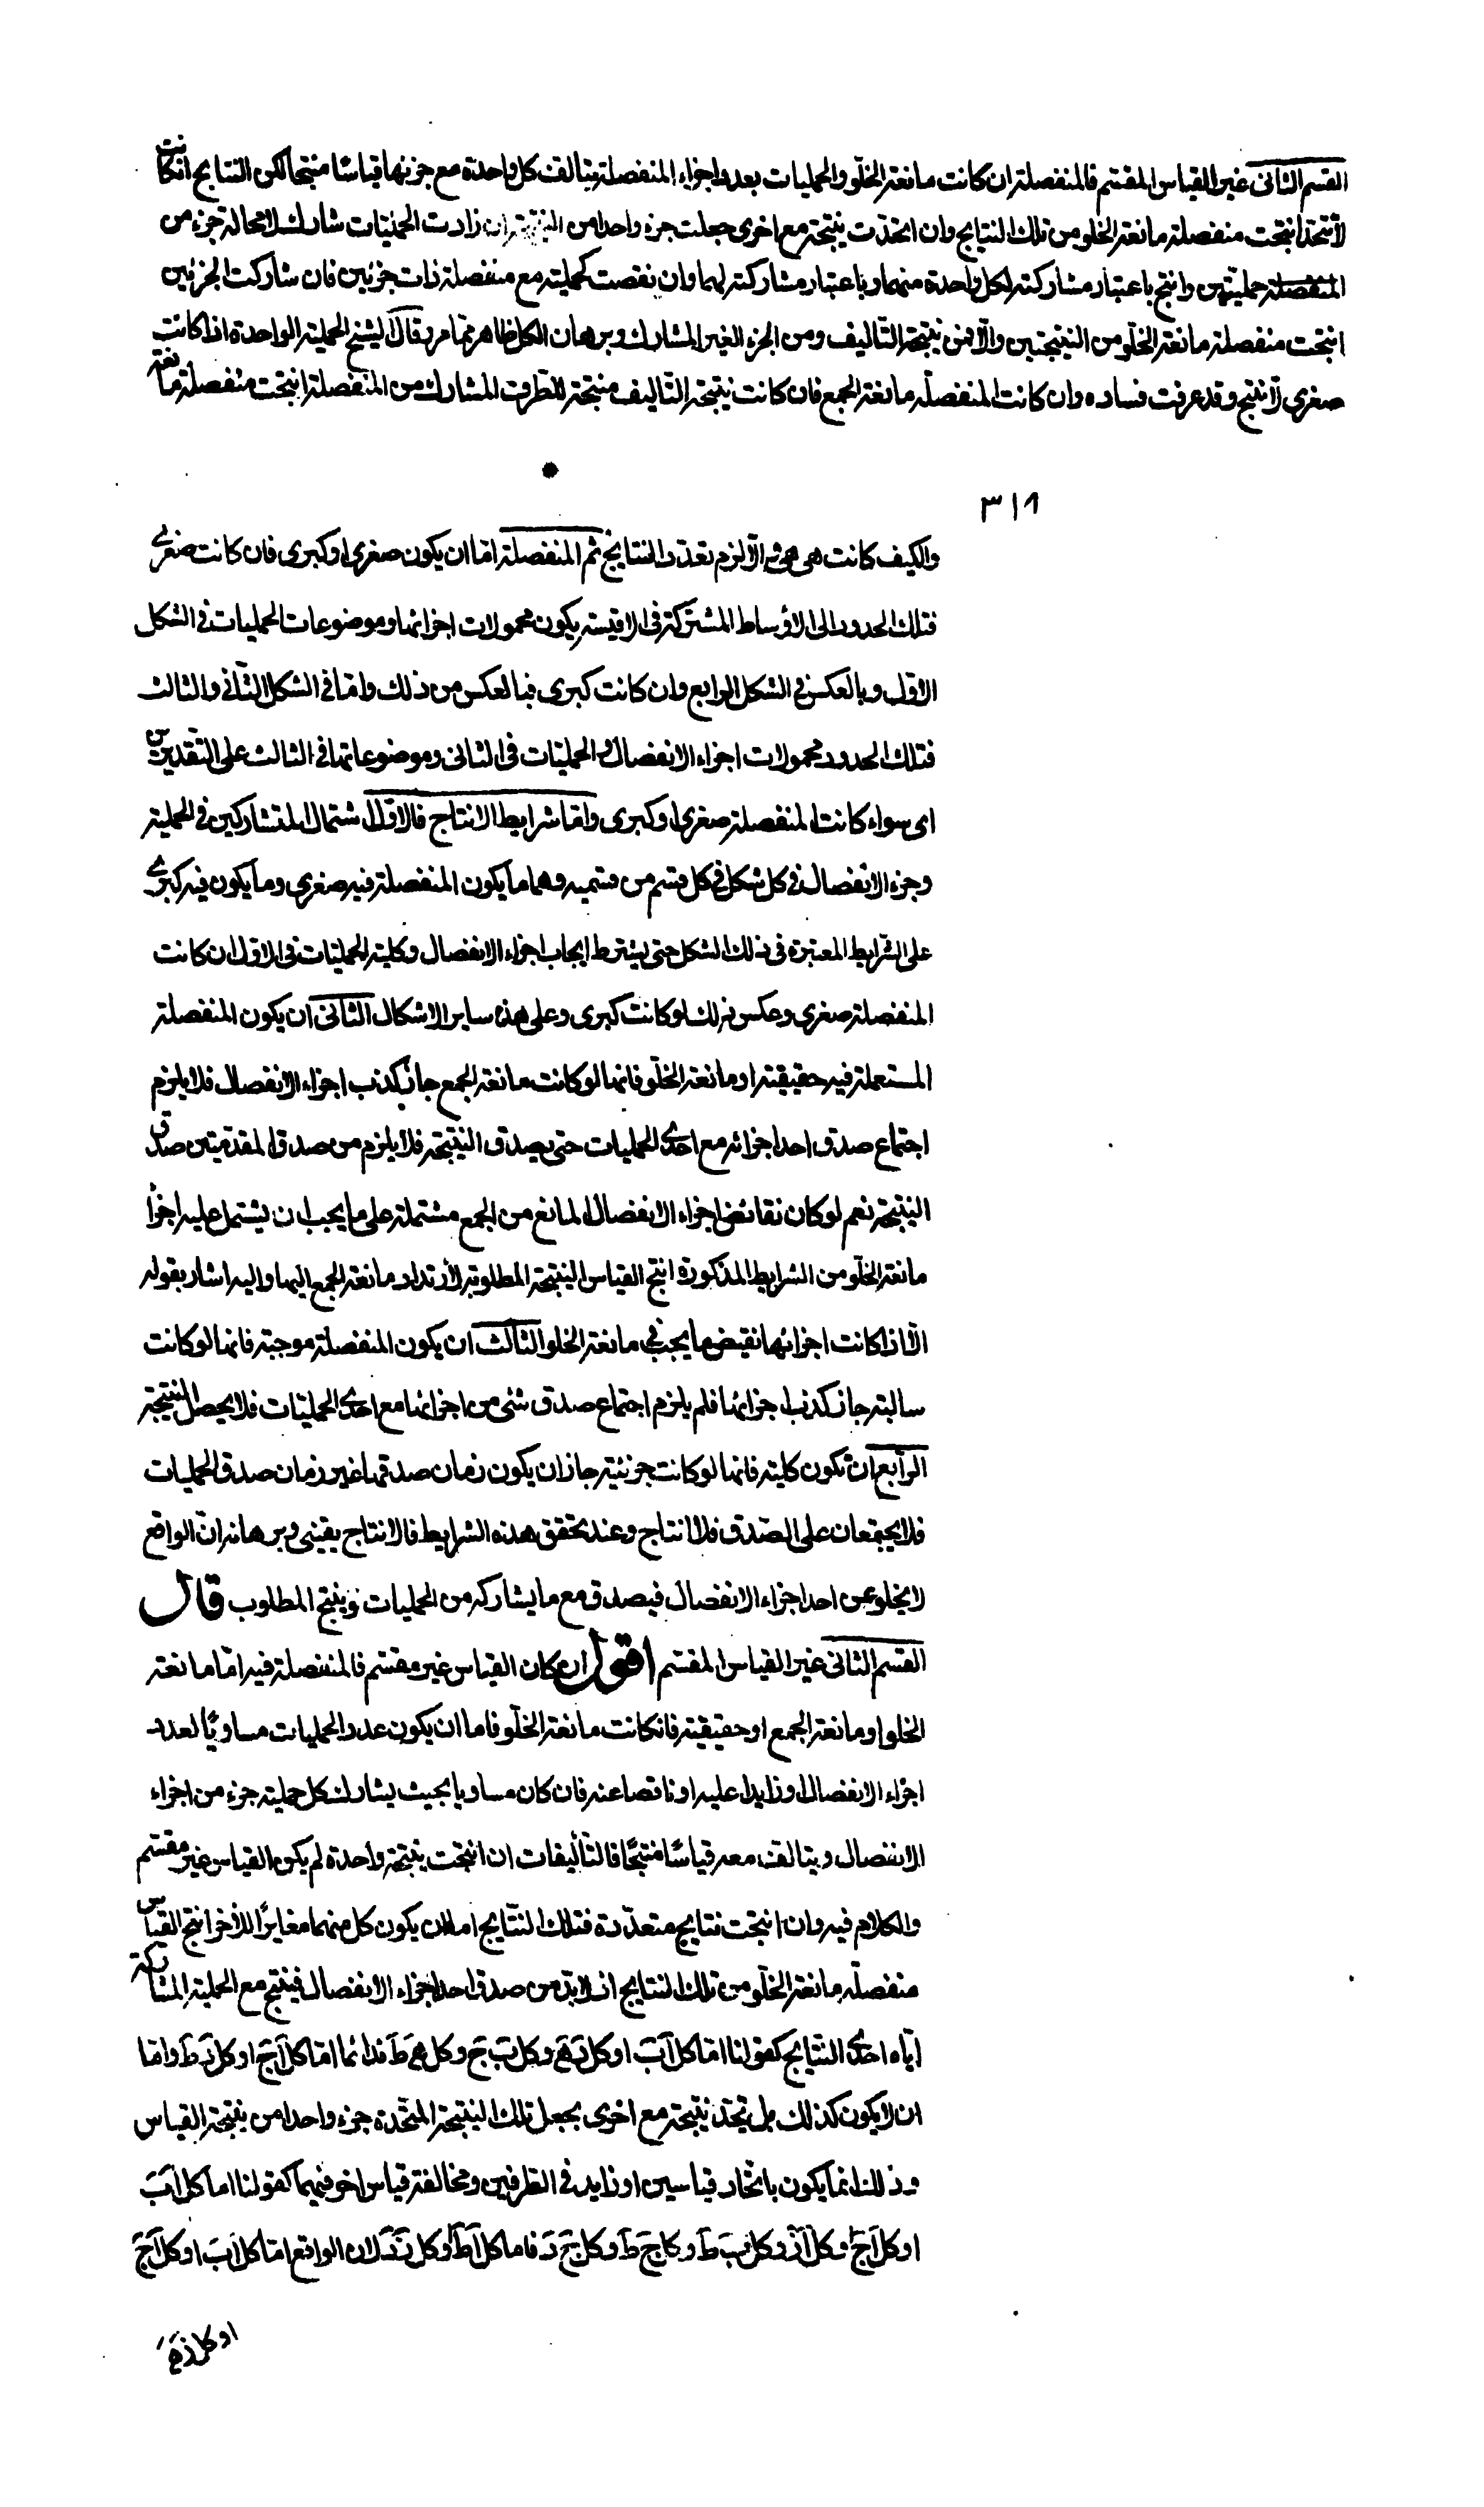 القسم الثانى غير القياس المقسم فالمنفصلة ان كانت مانعة الخلو والحمليات بعدد اجزاء المنفصلة يتالف كل واحدة مع جزئها قياسا منتجا لكن النتايج ان كانت
لا تتحد انتجت منفصلة مانعة الخلو من تلك النتايج وان اتحدت نتيجة مع اخرى جعلت جزء واحدا من النتيجة وان زادت الحمليات شارك لا محالة جزء من
المنفصلة حمليتين وانتج باعتبار مشاركته لكل واحدة منهما وباعتبار مشاركته لهما وان نقصت كحملية مع منفصلة ذات جزئين فان شاركت الجزئين
انتجت منفصلة مانعة الخلو من النتيجتين والا فمن نتيجة التاليف ومن الجزء الغير المشارك وبرهان الكل ظاهر مما مر قال الشيخ الحملية الواحدة اذا كانت
صغرى لا ينتج وقد عرفت فساده وان كانت المنفصلة مانعة الجمع فان كانت نتيجة التاليف منتجة للطرف المشارك من المنفصلة انتجت منفصلة مانعة
٣١٨
والكيف كانت هى هى والا لزم تعدد النتايج ثم المنفصلة اما ان يكون صغرى او كبرى فان كانت صغرى
فتلك الحدود اى الاوساط المشتركة فى الاقيسة يكون محمولات اجزائها وموضوعات الحمليات فى الشكل
الاول وبالعكس فى الشكل الرابع وان كانت كبرى فبالعكس من ذلك واما فى الشكل الثانى والثالث
فتلك الحدود محمولات اجزاء الانفصال والحمليات فى الثانى وموضوعاتها فى الثالث على التقديرين
اى سواء كانت المنفصلة صغرى او كبرى واما شرايط الانتاج فالاول اشتمال المتشاركين فى الحملية
وجزء الانفصال فى كل شكل فى كل قسم من قسميه وهما ما يكون المنفصلة فيه صغرى وما يكون فيه كبرى
على الشرايط المعتبرة فى ذلك الشكل حتى يشترط ايجاب اجزاء الانفصال وكلية الحمليات فى الاول ان كانت
المنفصلة صغرى وعكس ذلك لو كانت كبرى وعلى هذه ساير الاشكال الثانى ان يكون المنفصلة
المستعملة فيه حقيقية او مانعة الخلو فانها لو كانت مانعة الجمع جاز كذب اجزاء الانفصال فلا يلزم
اجتماع صدق احد اجزائه مع احدى الحمليات حتى يصدق النتيجة فلا يلزم من صدق المقدمتين صدق
النتيجة نعم لو كان نقائض اجزاء الانفصال المانع من الجمع مشتملة على ما يجب ان يشتمل عليه اجزأ
مانعة الخلو من الشرايط المذكورة انتج القياس النتيجة المطلوبة لارتداد مانعة الجمع اليها واليه اشار بقوله
الا اذا كانت اجزائها نقيض ما يجب فى مانعة الخلو الثالث ان يكون المنفصلة موجبة فانها لو كانت
سالبة جاز كذب اجزائها فلم يلزم اجتماع صدق شئ من اجزائها مع احدى الحمليات فلا يحصل النتيجة
الرابع ان تكون كلية فانها لو كانت جزئية جاز ان يكون زمان صدقها غير زمان صدق الحمليات
فلا يجتمعان على الصدق فلا انتاج وعند تحقق هذه الشرايط فالانتاج يقينى وبرهانه ان الواقع
لا يخلو عن احد اجزاء الانفصال فيصدق مع ما يشاركه من الحمليات وينتج المطلوب قال
القسم الثانى غير القياس المقسم اقول ان كان القياس غير مقسم فالمنفصلة فيه اما مانعة
الخلو او مانعة الجمع او حقيقية فان كانت مانعة الخلو فاما ان يكون عدد الحمليات مساويا لعدد
اجزاء الانفصال او زايدا عليه او ناقصا عنه فان كان مساويا بحيث يشارك كل حملية جزء من اجزاء
الانفصال ويتالف معه قياسا منتجا فالتأليفات ان انتجت نتيجة واحدة لم يكن القياس غير مقسم
والكلام فيه وان انتجت نتايج متعددة فتلك النتايج اما ان يكون كل منهما مغايرا للأخر انتج القياس
منفصلة مانعة الخلو من تلك النتايج اذ لا بد من صدق احد اجزاء الانفصال فينتج مع الحملية المشاركة
اياه احدى النتايج كقولنا اما كل اب او كل ده وكل ب ج وكل ه ط فدائما اما كل اج او كل د ط واما
ان لا يكون كذلك بل يتحد نتيجة مع اخرى بجعل تلك النتيجة المتحدة جزء واحدا من نتيجة القياس
وذلك انما يكون باتحاد قياسين او زايد فى الطرفين ومخالفة قياس اخر فيهما كقولنا اما كل اب
او كل اج وكل ب ط وكل ج ط لان الواقع اما كل اب او كل اج